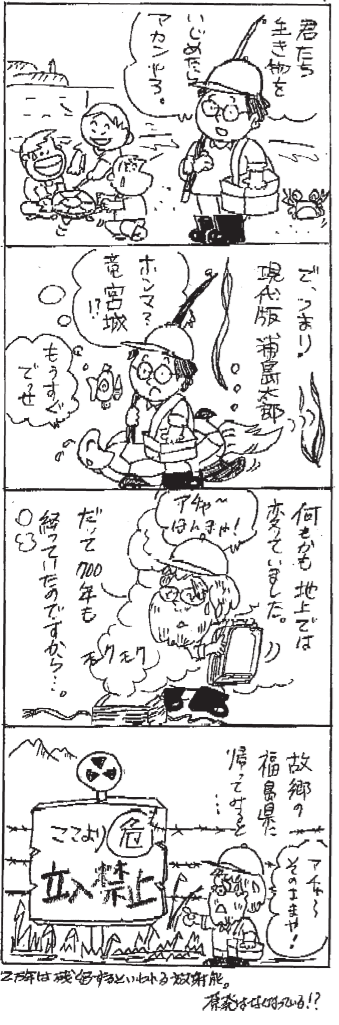 君たち
生き物を
いじめたら
アカンやろ。
で、つまり
現代版浦島太郎
ホンマ?
竜宮城
!?
もうすぐ
でっせ
何もかも地上では
変っていました。
アチャ〜
ほんまや!
だって700年も
経っていたのですから…。
モクモク
故郷の
福島県に
帰ってみると
…
アチャ〜
そのままや!
ここより危
立入禁止
2万年は残留するといわれる放射能。
原発はなくなっている!?